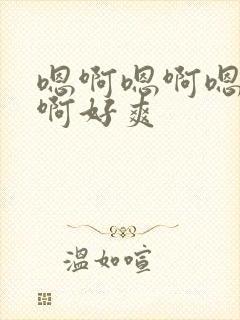 嗯啊嗯啊嗯
啊好爽
温如喧